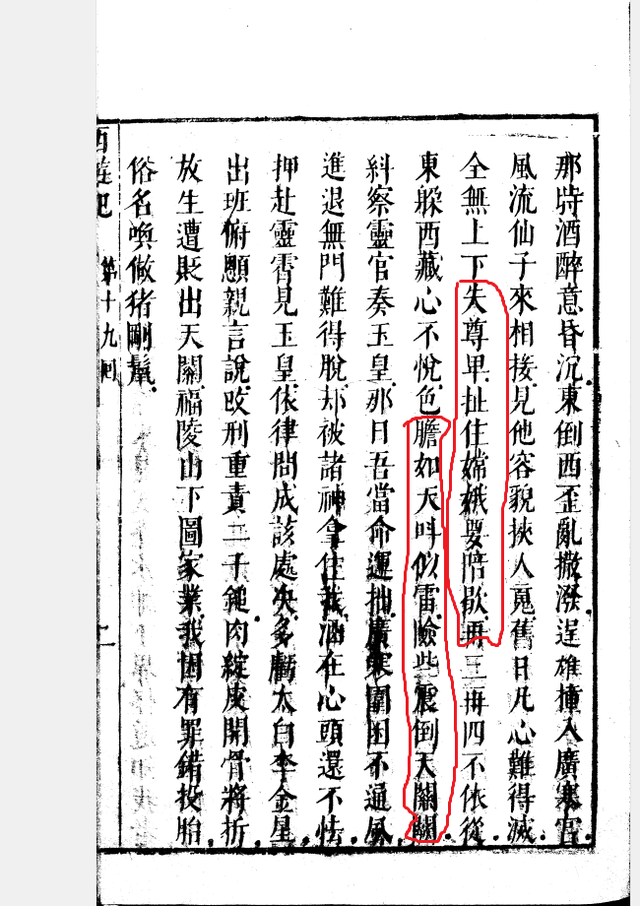 那時酒醉意昏沉東倒西歪亂撒潑逞雄撞入廣寒宮
風流仙子來相接見他容貌挾人䰟舊日凡心難得滅
全無上下失尊卑扯住嫦娥要陪歇再三再四不依從
東躲西藏心不悅色膽如天叫似雷險些震倒天關闕
糾察靈官奏玉皇那日吾當命運拙廣寒圍困不通風
進退無門難得脫却被諸神拿住我酒在心頭還不怯
押赴靈霄見玉皇依律問成該處决多虧太白李金星
出班俯顖親言說改刑重責二千鎚肉綻皮開骨將折
放生遭貶出天關福陵山下圖家業我因有罪錯投胎
俗名喚做猪剛鬣
西遊記 第十九回